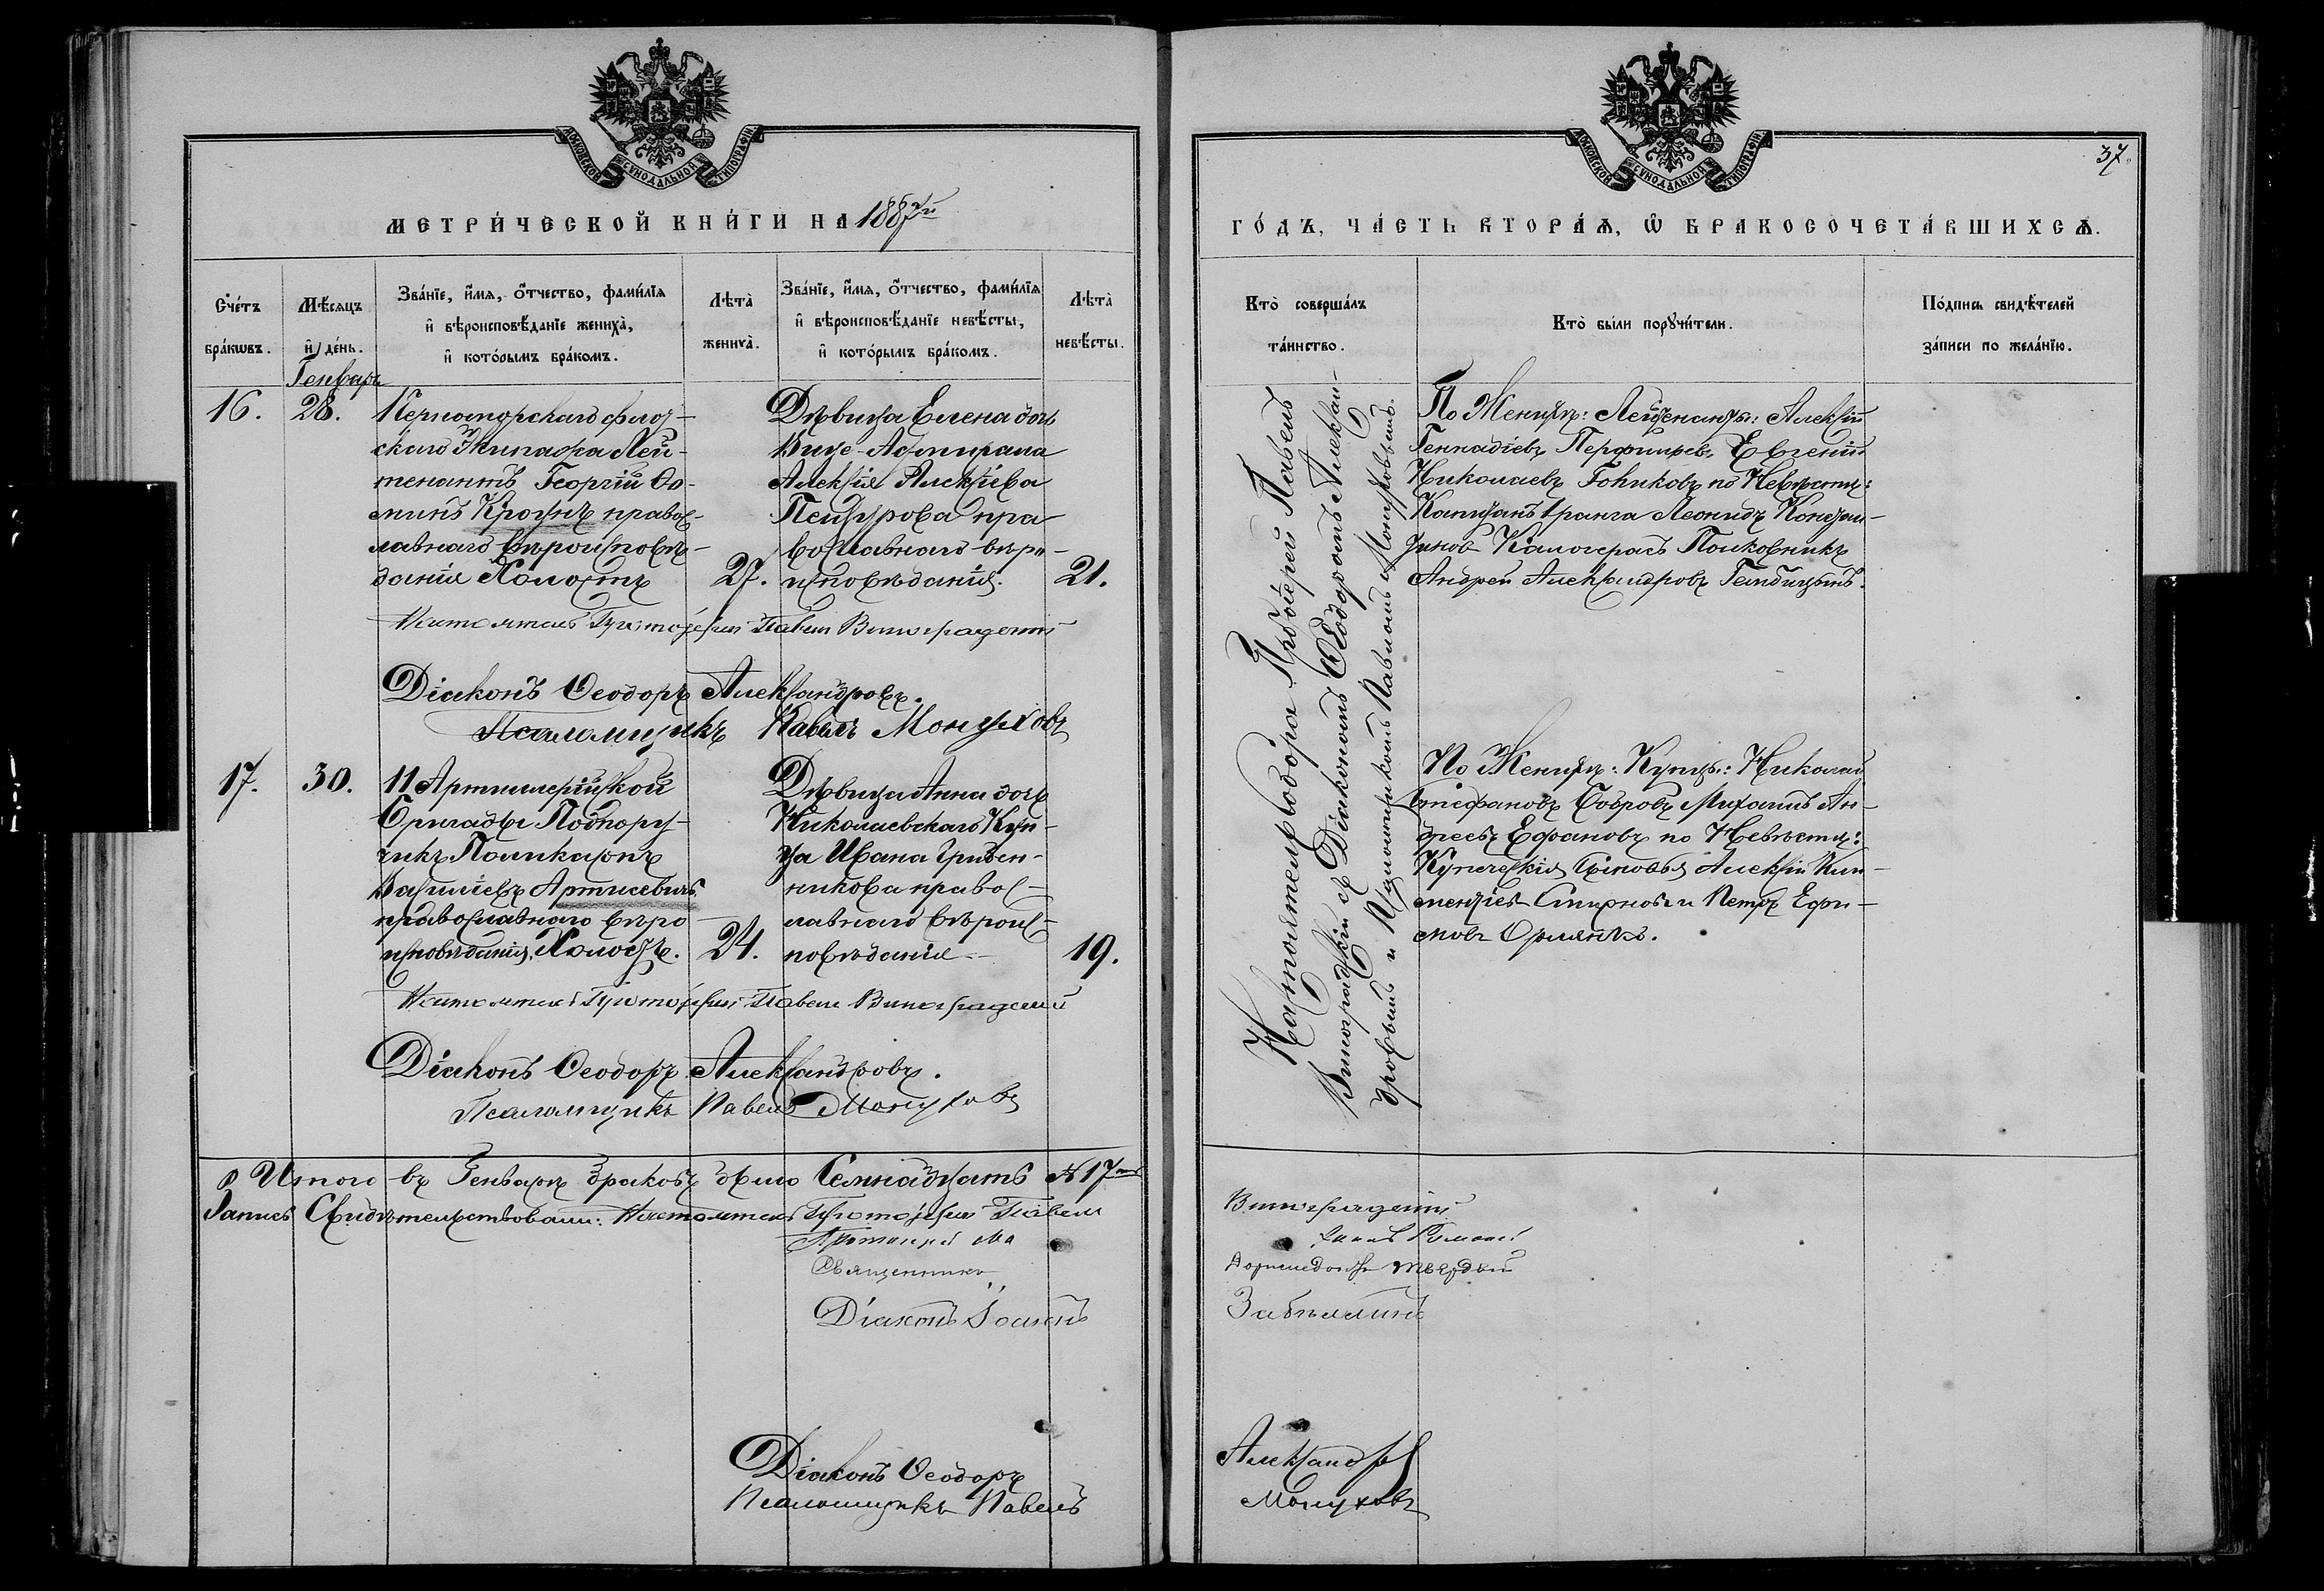 МОСКОВСКОЙ СѴНОДАЛЬНОЙ ТИПОГРАФІИ
МЕТРИ́ЧЕСКОЙ КНИ́ГИ НА 1887й
Сче́тъ бра́кѡвъ.
Мѣ́сяцъ и҆ де́нь.
Зва́нїе, и҆́мѧ, ѻ҆́тчество, фами́лїѧ
и҆ вѣроисповѣ́данїе жениха̀,
и҆ кото́рымъ бра́комъ.
Лѣта̀ жениха̀.
Зва́нїе, и҆́мѧ, ѻ҆́тчество, фами́лїѧ
и҆ вѣроисповѣ́данїе невѣ́сты,
и҆ кото́рымъ бра́комъ.
Лѣта̀ невѣ́сты.
Генварь
16.
28.
Черноморскаго флот-
скаго Экипажа Лей-
тенантъ Георгій Ѳо-
минъ Кроунъ правос-
лавнаго вѣроисповѣ-
данія Холостъ
27.
Дѣвица Елена дочь
Вице-Адмирала
Алексія Алексіева
Пещурова пра
вославнаго вѣро-
исповѣданія.
21.
Настоятель Протоіерей Павелъ Виноградскій
Діаконъ Ѳеодоръ Александровъ.
Псаломщикъ Павелъ Монуховъ
17.
30.
11 Артиллерійской
Бригады Подпору-
чикъ Поликарпъ
Василіевъ Артисевичъ
православнаго вѣро
исповѣданія, Холостъ.
24.
Дѣвица Анна дочь
Николаевскаго Куп-
ца Ивана Гребен-
никова правос-
лавнаго вѣроис-
повѣданія
19.
Настоятель Протоіерей Павелъ Виноградскій
Діаконъ Ѳеодоръ Александровъ.
Псаломщикъ Павелъ Монуховъ
Итого въ Генварѣ браковъ было Семнадцать № 17
Запись Свидѣтельствовали: Настоятель Протоіерей Павелъ
Протоіерей
Священникъ
Діаконъ Іоаннъ
Діаконъ Ѳеодоръ
Псаломщикъ Павелъ
МОСКОВСКОЙ СѴНОДАЛЬНОЙ ТИПОГРАФІИ
37.
ГО́ДЪ, ЧА́СТЬ ВТОРА́Ѧ, Ѽ БРАКОСОЧЕТА́ВШИХСѦ.
Кто̀ соверша́лъ
та́инство.
Кто̀ бы́ли порꙋчи́тели.
По́дпись свидѣ́телей
за́писи по жела́нїю.
Настоятель Собора Протоіерей Павелъ
Виноградскій съ Діакономъ Ѳеодоромъ Александ-
ровымъ и Псаломщикомъ Павломъ Монуховымъ.
По Женихѣ: Лейтенанты: Алексій
Геннадіевъ Перфильевъ Евгеній
Николаевъ Гоھиковъ по Невѣстѣ:
Капитанъ 1 ранга Леонидъ Констан-
тиновъ Каломерасъ Полковникъ
Андрей Александровъ
По Женихѣ: Купцы: Николай
Стефановъ Бобровъ Михаилъ Ан-
дреевъ Ефановъ по Невѣстѣ:
Купеческія Сыновья Алексій Кли-
ментіевъ Смирновъ и Петръ Ефи-
мовъ Орлянкъ.
Виноградскій
Забѣлинъ
Александровъ
Монуховъ